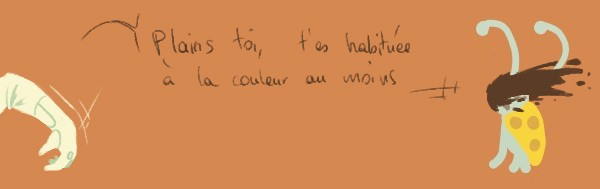 Plains toi, t'es habituée
à la couleur au moins